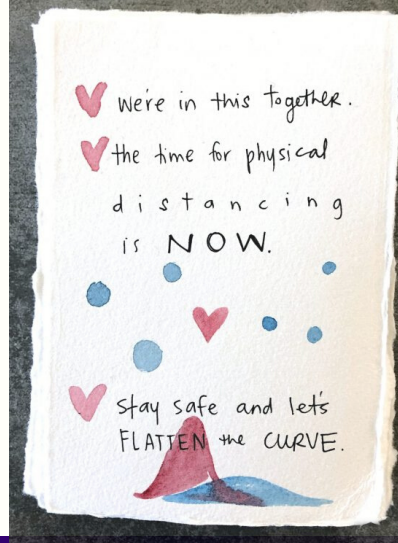 we're in this together.
the time for physical
distancing
is NOW.
stay safe and let's
FLATTEN the CURVE.